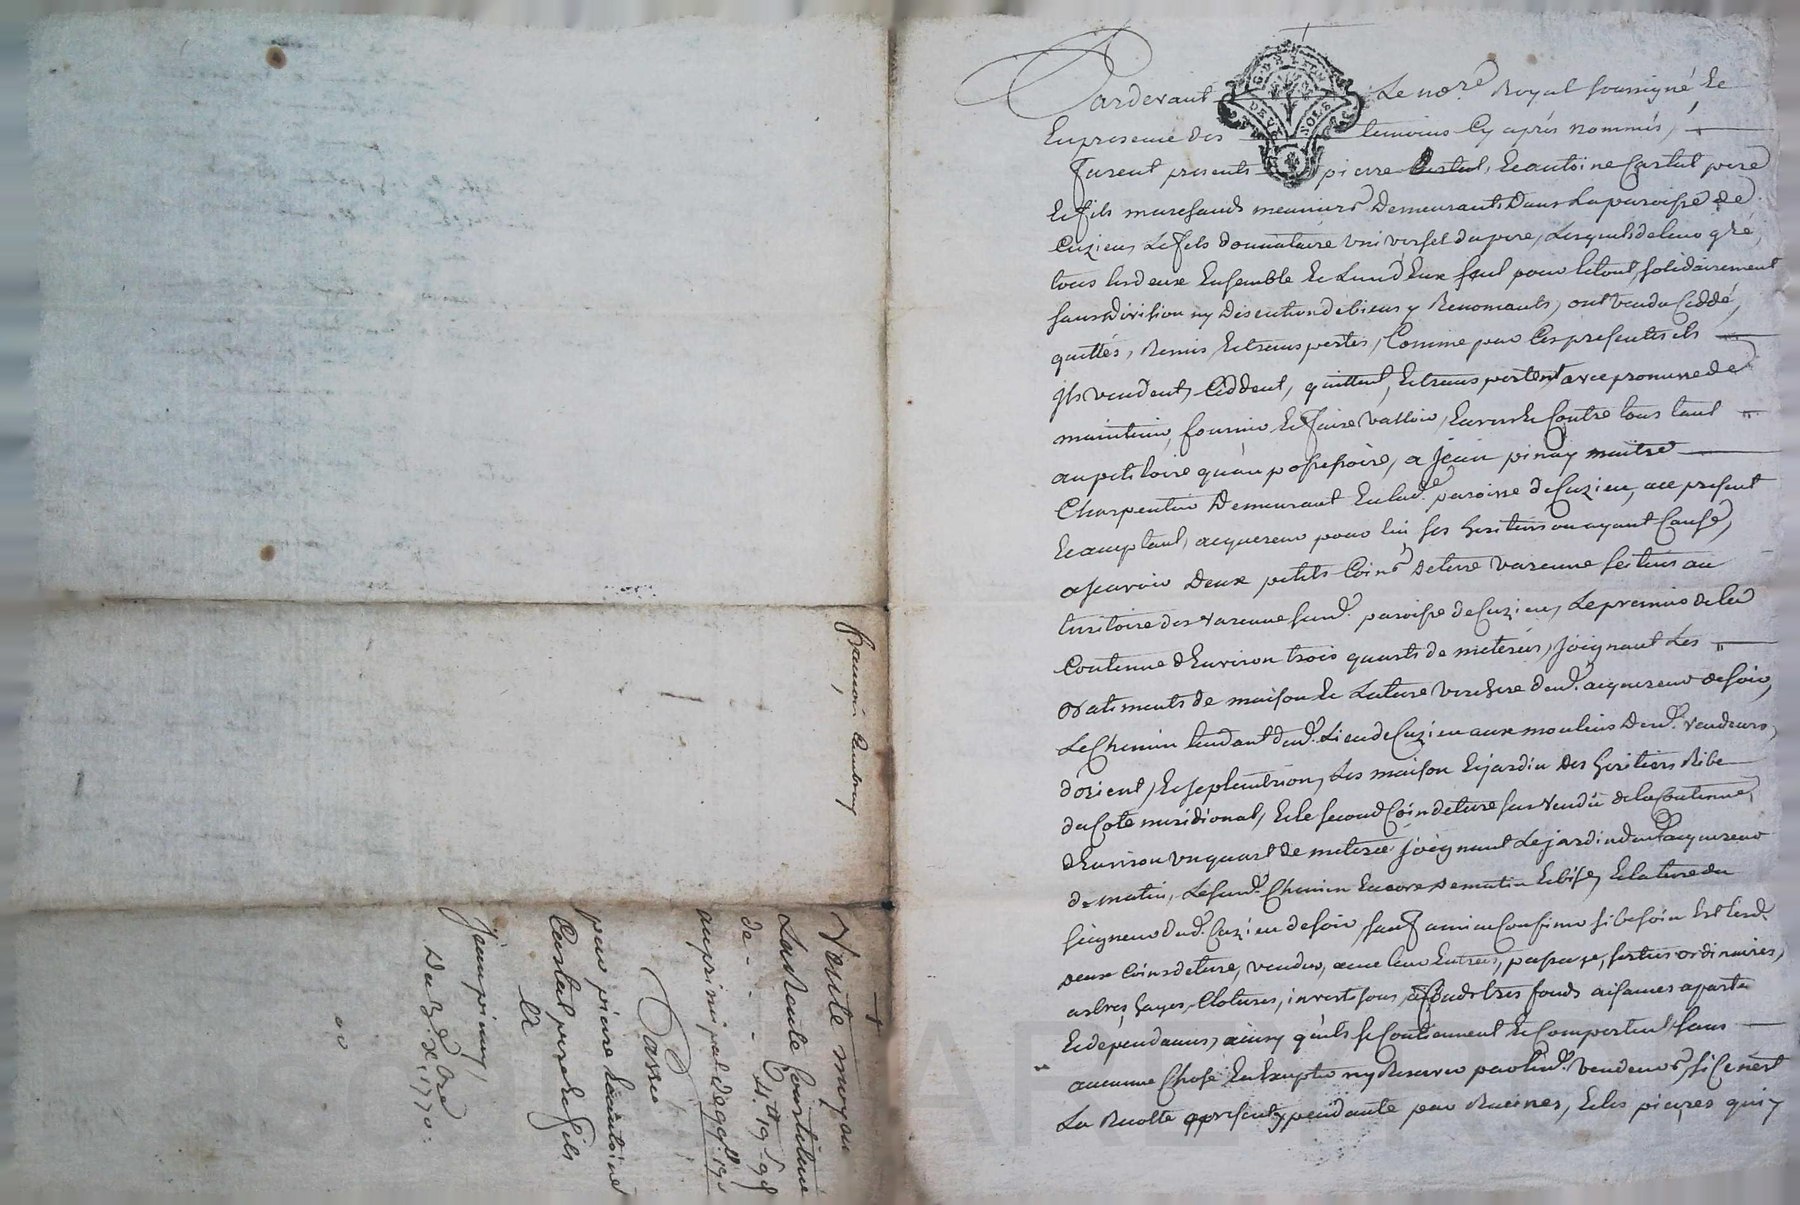 Pardevant Le no.re Royal soussigné Et
En presence des temoins Cy aprés nommés,
furent presents pierre Castal, Et antoine Castal pere
Et fils marchands meuniers Demeurants Dans La paroisse de
Cuzieu, Le fils donnataire universel du pere, Lesquels de leur gré,
tous les deux Ensemble Et L'un d'Eux seul pour le tout, solidairement
sans division ny discution de biens y Renoncants, ont vendu Ceddé,
quittés, Remis, Et transportés, Comme par Ces presentes ils
ils vendent, Ceddent, quittent, Et transportent avec promesse de
maintenir, fournir Et faire valloir, Envers Et Contre tous tant
au petitoire qu'au possessoire, a jean pinay maitre
Charpentier Demeurant En lad.e paroisse de Cuzieu, ace present
Et acceptant, acquereur pour lui ses heritiers ou ayant Cause,
ascavoir Deux petits Coins de terre varenne scitués au
territoire des varenne susd. paroisse de Cuzieu, Le premier de la
Contenue d'Environ trois quarts de meterée, joignant Les
Batiments de maison Et La terre verchere dud. acquereur de soir,
Le Chemin tendant dud. Lieu de Cuzieu aux moulins Desd. vendeurs,
d'orient, Et septentrion, Les maison Et jardin des heritiers Ribe
du Coté meridional, Et le second Coin de terre sus vendu de la Contenue,
d'Environ un quart de meterée joignant Le jardin dud. acquereur
de matin, Le susd. Chemin Encore de matin Et bise, Et la terre du
seigneur dud. Cuzieu de soir, sauf a mieux Confiner si besoin Est Lesd.
deux Coins de terre, vendus, avec leur Entrées, passage, sorties ordinaires,
arbres, hayes, Clotures, fonds aisances aparte
Et dependances, ainsy qu'ils se Contiennent Et Comportent sans
aucunne Chose En Excepter ny Reserver par lesd. vendeurs, si Ce n'est
La Recolte apresent pendante par Racines, Et les pierres qui y
Vente moyen
La Rente Constituée
de - - - 4.tt 19.s 9.d
au principal de 99.tt
Passée
par pierre Et antoine
Castal pere Et fils
a
jean pinay,
Du 3.e Xbre
1770.